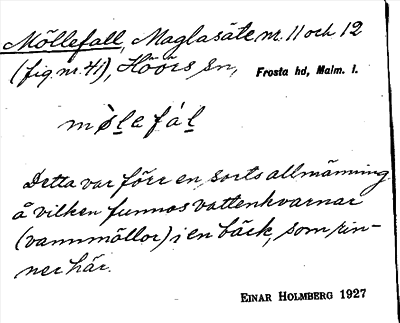 Möllefall, Maglasäte nr. 11 och 12
(fig. nr. 41), Höörs sn, Frosta hd, Malm. l.
mø̀lefál
Detta var förr en sorts allmänning
å vilken funnos vattenkvarnar
(vannmöllor) i en bäck, som rin-
ner här.
EINAR HOLMBERG 1927